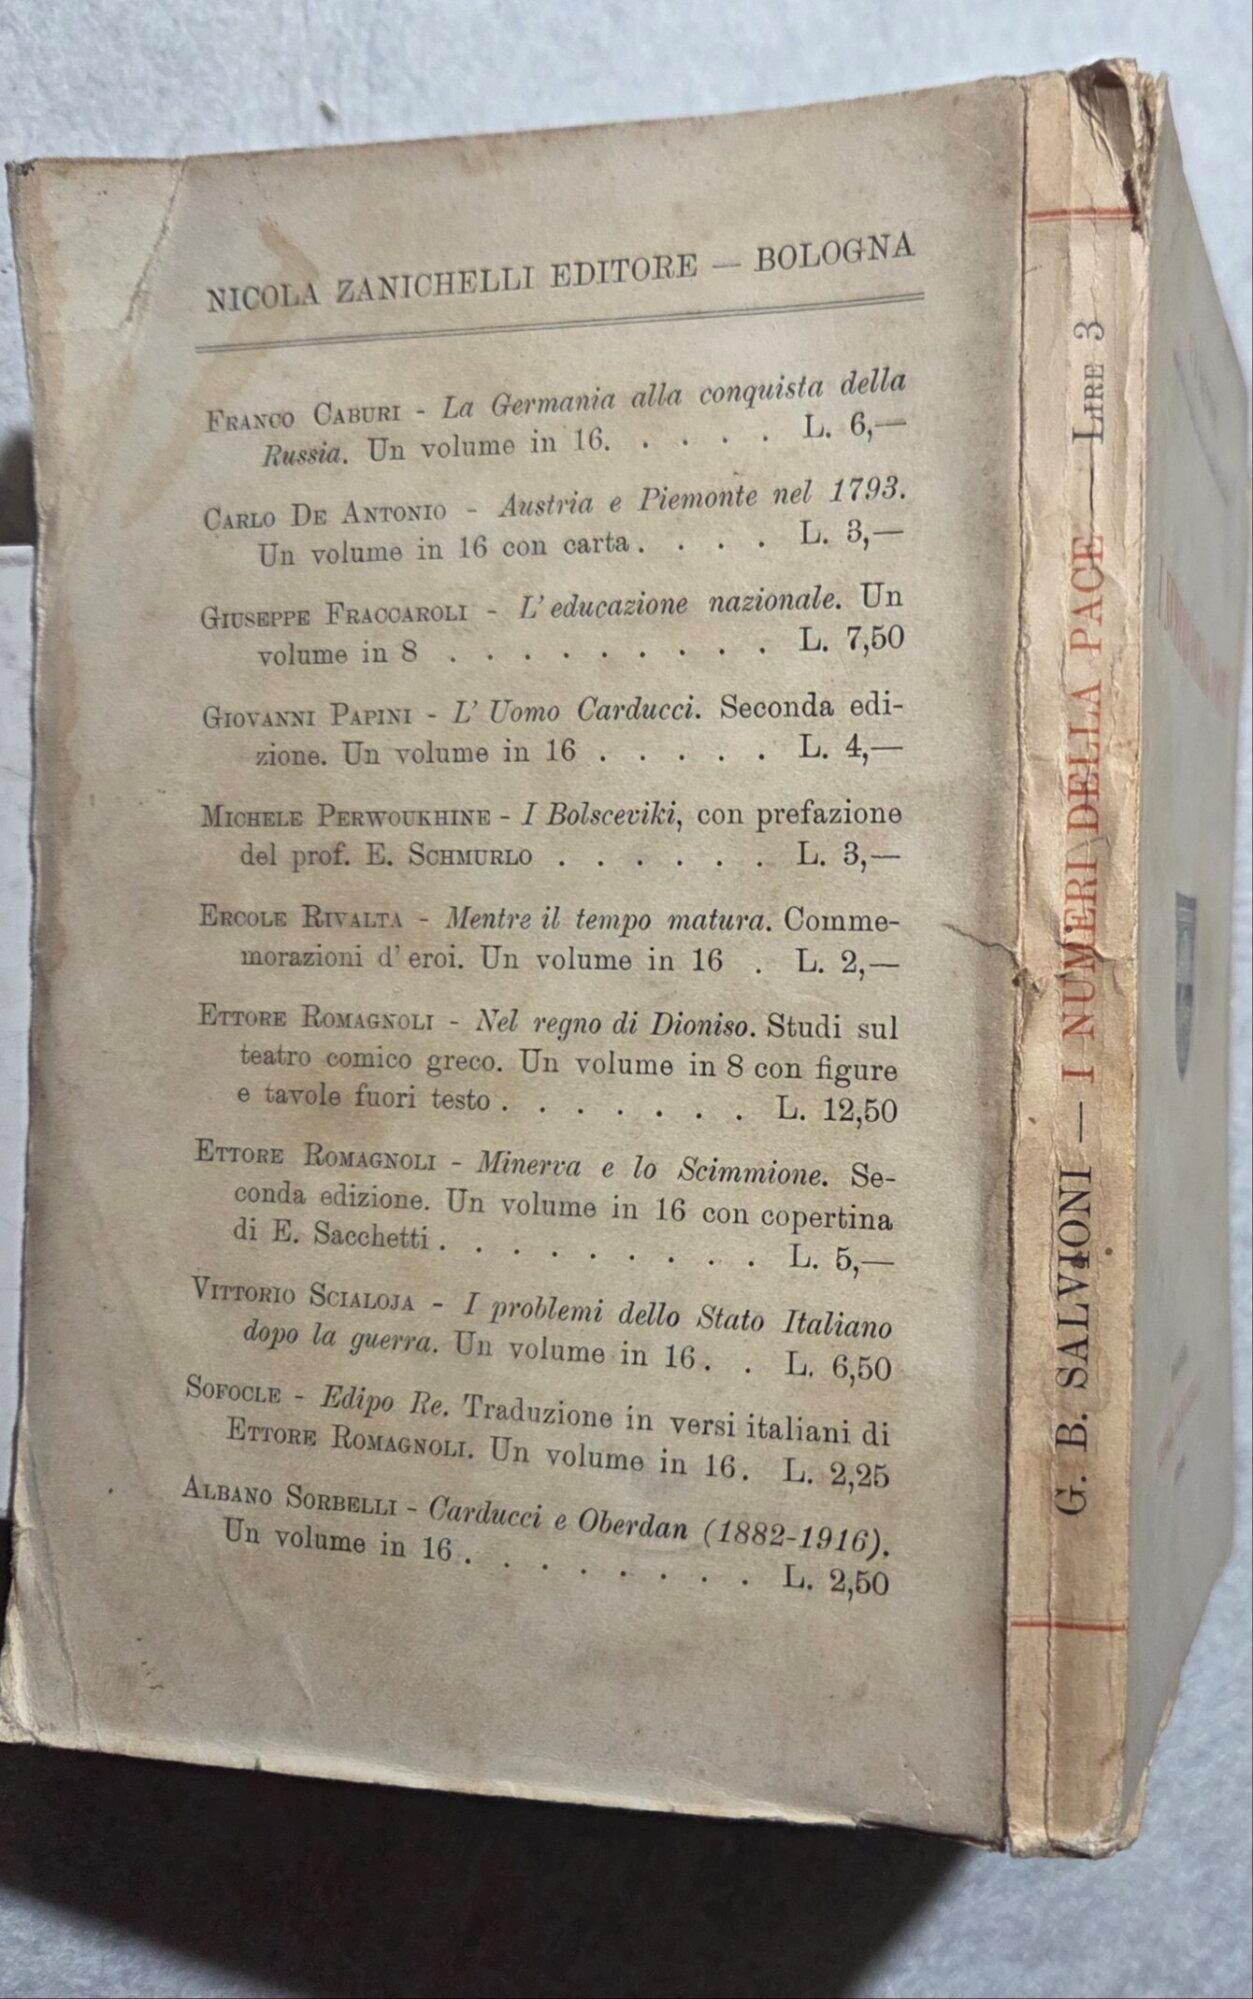 NICOLA ZANICHELLI EDITORE — BOLOGNA
FRANCO CABURI - La Germania alla conquista della
Russia. Un volume in 16. . . . . L. 6,—
CARLO DE ANTONIO - Austria e Piemonte nel 1793.
Un volume in 16 con carta . . . . L. 3,—
GIUSEPPE FRACCAROLI - L' educazione nazionale. Un
volume in 8 . . . . . . . . . L. 7,50
GIOVANNI PAPINI - L' Uomo Carducci. Seconda edi-
zione. Un volume in 16 . . . . . L. 4,—
MICHELE PERWOUKHINE - I Bolsceviki, con prefazione
del prof. E. SCHMURLO . . . . . . L. 3,—
ERCOLE RIVALTA - Mentre il tempo matura. Comme-
morazioni d' eroi. Un volume in 16 . L. 2,—
ETTORE ROMAGNOLI - Nel regno di Dioniso. Studi sul
teatro comico greco. Un volume in 8 con figure
e tavole fuori testo . . . . . . . L. 12,50
ETTORE ROMAGNOLI - Minerva e lo Scimmione. Se-
conda edizione. Un volume in 16 con copertina
di E. Sacchetti . . . . . . . . . L. 5,—
VITTORIO SCIALOJA - I problemi dello Stato Italiano
dopo la guerra. Un volume in 16 . . L. 6,50
SOFOCLE - Edipo Re. Traduzione in versi italiani di
ETTORE ROMAGNOLI. Un volume in 16. L. 2,25
ALBANO SORBELLI - Carducci e Oberdan (1882-1916).
Un volume in 16 . . . . . . . . L. 2,50
G. B. SALVIONI — I NUMERI DELLA PACE — LIRE 3